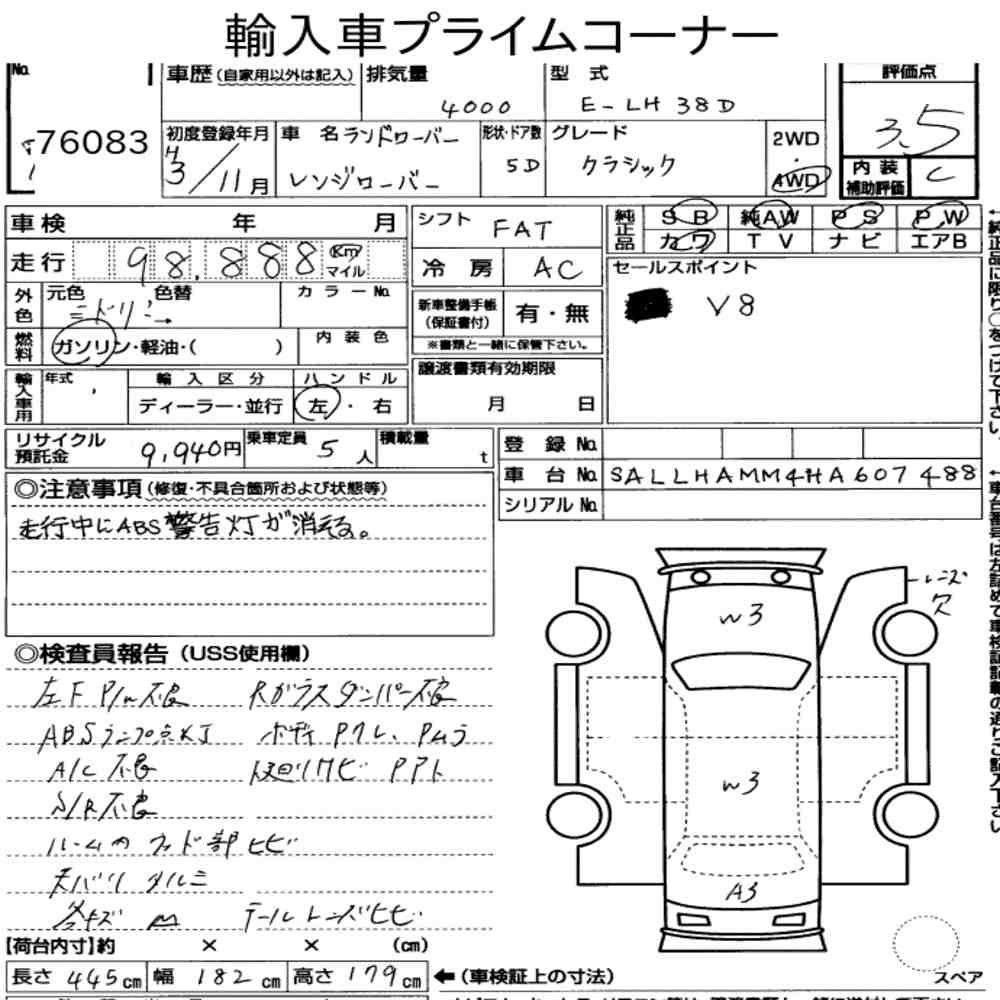 輸入車プライムコーナー
No. 車歴(自家用以外は記入) 排気量 4000 型式 E-LH38D 評価点 3.5
76083 初度登録年月 H3/11月 車名 ランドローバー レンジローバー 形状・ドア数 5D グレード クラシック 2WD・4WD 内装補助評価 C
車検 年 月 シフト FAT 純正品 SB 純AW PS PW
カワ TV ナビ エアB
走行 98,888 Km マイル 冷房 AC セールスポイント
V8
外色 元色 色替 カラーNo. 新車整備手帳(保証書付) 有・無
ミドリ→ ※書類と一緒に保管下さい。
燃料 ガソリン・軽油・( ) 内装色
譲渡書類有効期限
月 日
輸入車用 年式 輸入区分 ハンドル
ディーラー・並行 左・右
リサイクル預託金 9,940円 乗車定員 5人 積載量 t
登録No.
車台No. SALLHAMM4HA607488
シリアルNo.
◎注意事項(修復・不具合箇所および状態等)
走行中にABS警告灯が消える。
◎検査員報告(USS使用欄)
左F P/w不良 Rガラスダンパー不良
ABSランプ点灯 ボディ Pクレ、Pムラ
A/C不良 下回りサビ PPト
S/R不良
ルーム内ウッド部ヒビ
天バリタルミ
各キズ テールレンズヒビ
レンズ穴
W3
W3
A3
スペア
【荷台内寸】約 × × (cm)
長さ 445cm 幅 182cm 高さ 179cm ←(車検証上の寸法)